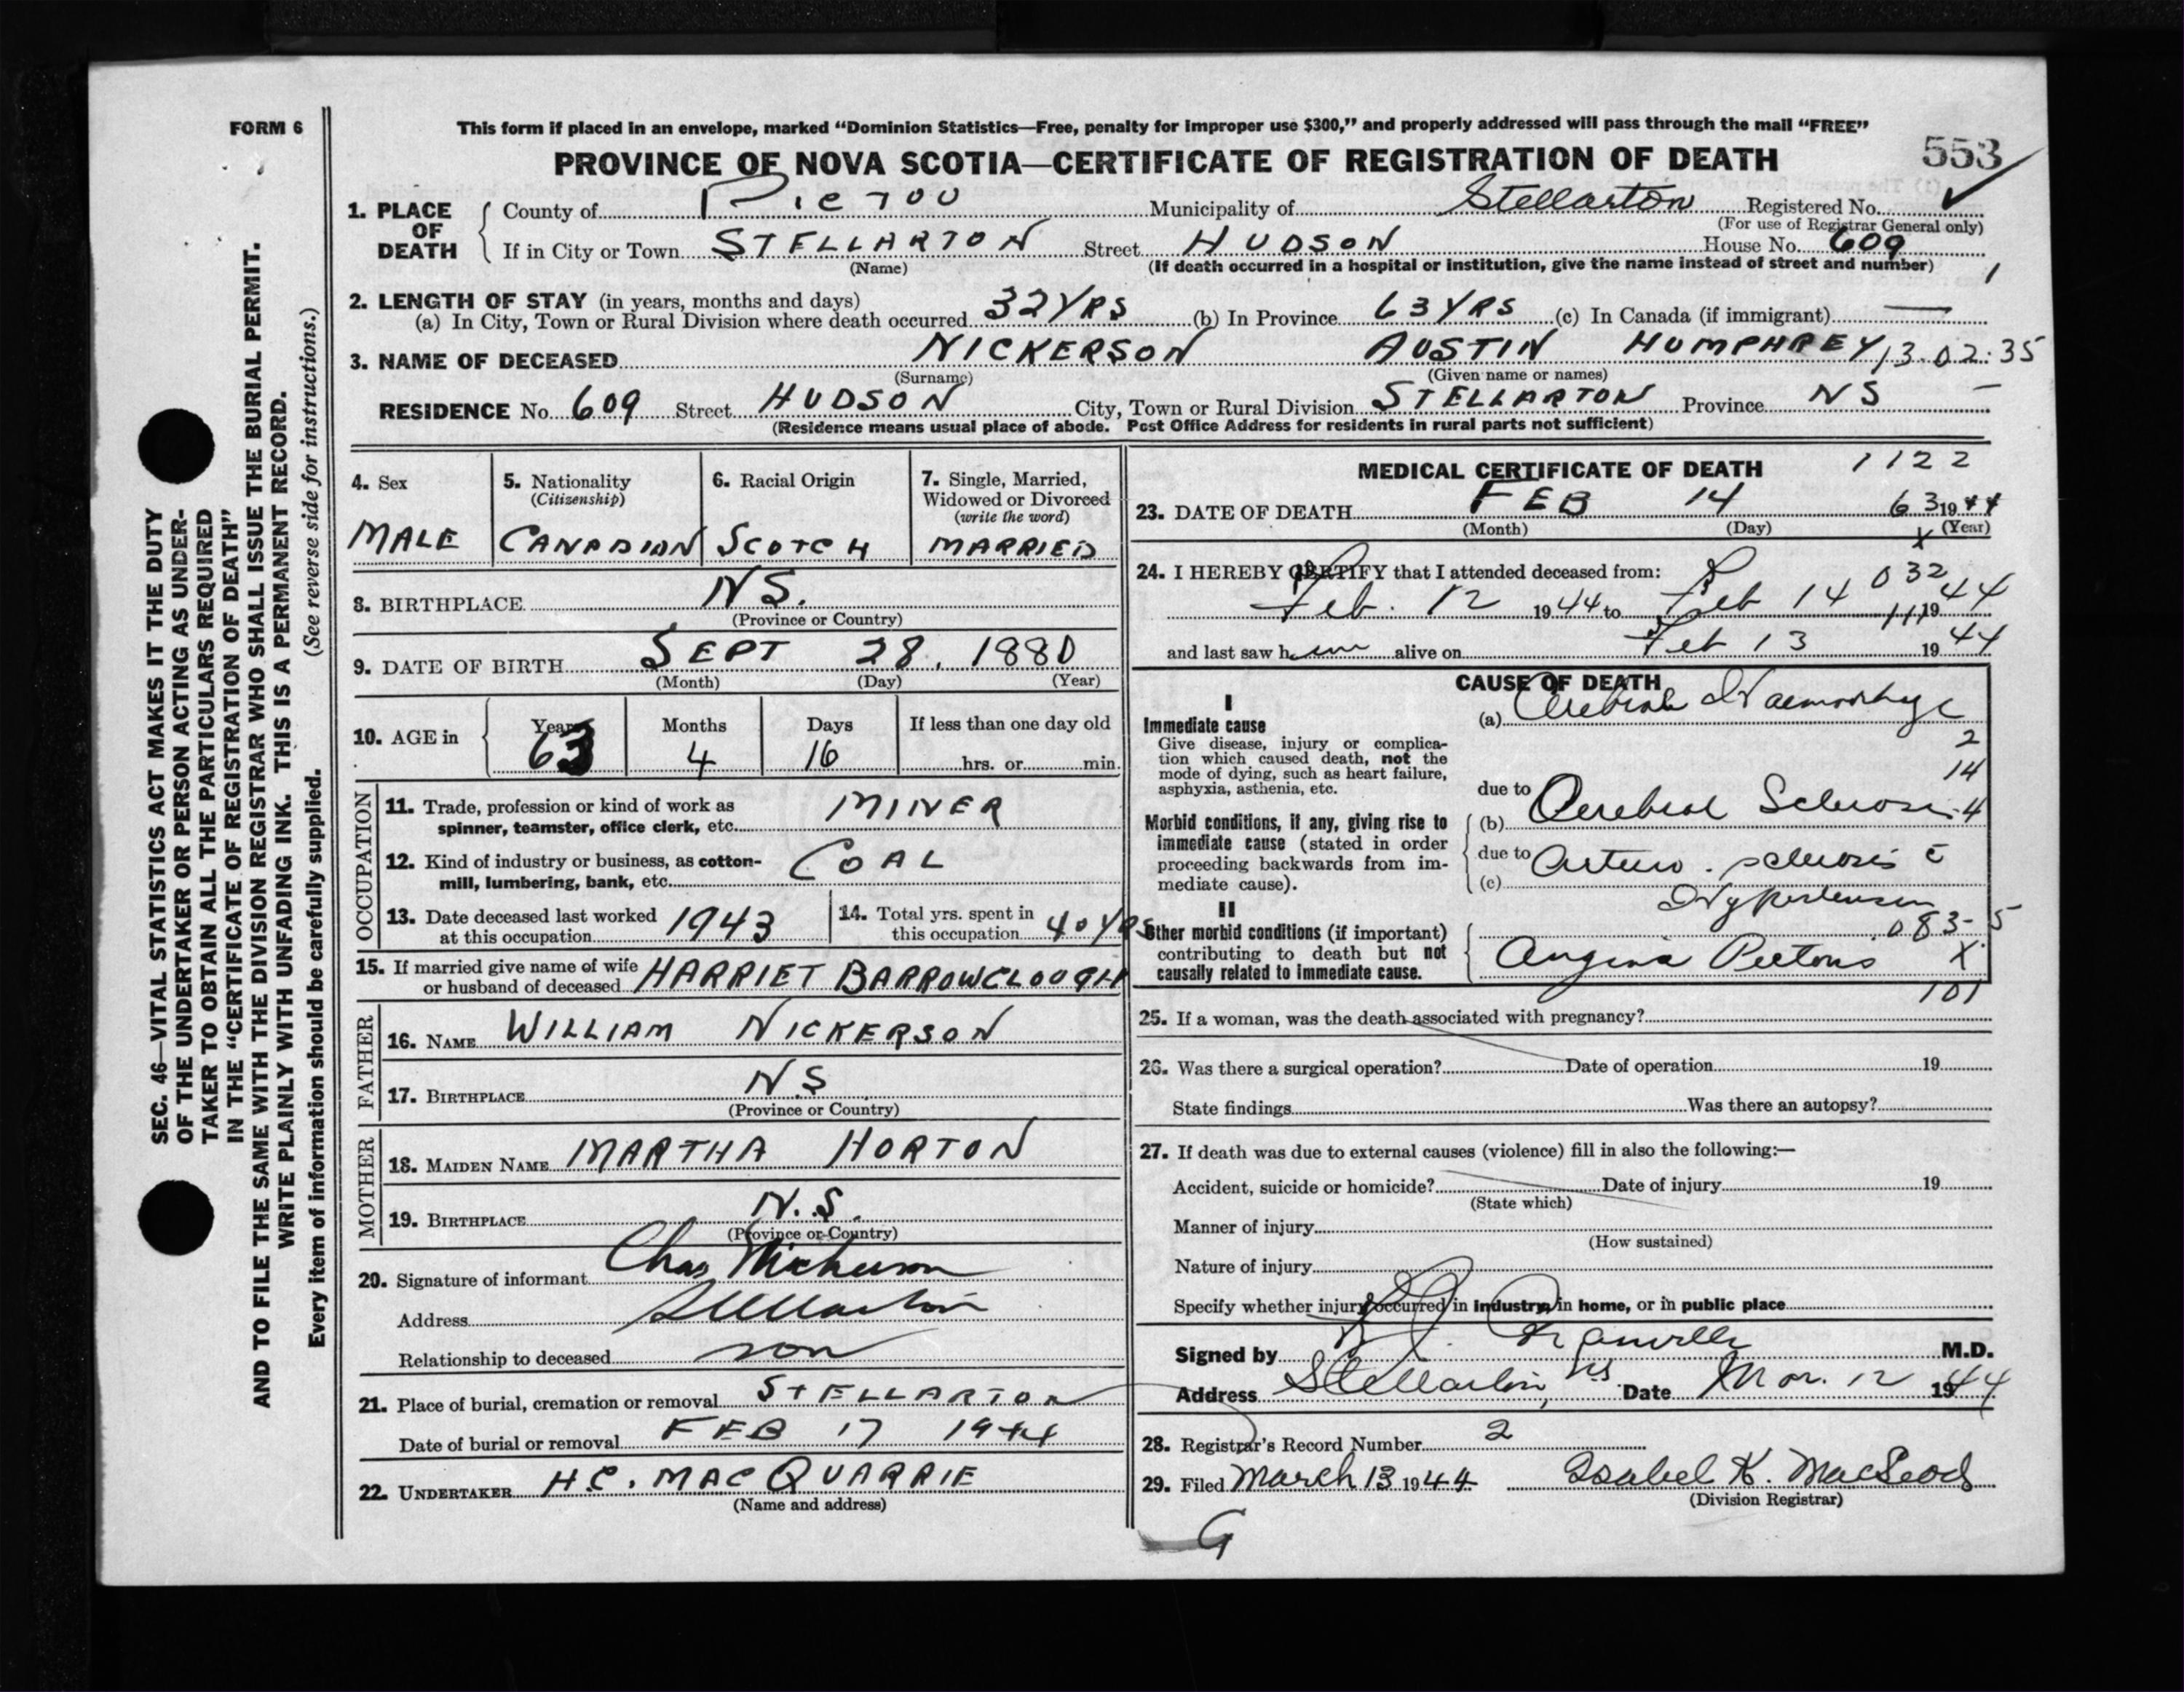 FORM 6
This form if placed in an envelope, marked "Dominion Statistics—Free, penalty for improper use $300," and properly addressed will pass through the mail "FREE"
553
PROVINCE OF NOVA SCOTIA—CERTIFICATE OF REGISTRATION OF DEATH
1. PLACE OF DEATH
County of PICTOU Municipality of Stellarton Registered No. ✓
(For use of Registrar General only)
If in City or Town STELLARTON Street HUDSON House No. 609
(Name) (If death occurred in a hospital or institution, give the name instead of street and number) 1
2. LENGTH OF STAY (in years, months and days)
(a) In City, Town or Rural Division where death occurred 32 YRS (b) In Province 63 YRS (c) In Canada (if immigrant) —
3. NAME OF DECEASED NICKERSON AUSTIN HUMPHREY 13.02.35
(Surname) (Given name or names)
RESIDENCE No. 609 Street HUDSON City, Town or Rural Division STELLARTON Province NS —
(Residence means usual place of abode. Post Office Address for residents in rural parts not sufficient)
4. Sex
MALE
5. Nationality
(Citizenship)
CANADIAN
6. Racial Origin
SCOTCH
7. Single, Married,
Widowed or Divorced
(write the word)
MARRIED
8. BIRTHPLACE NS.
(Province or Country)
9. DATE OF BIRTH SEPT 28, 1880
(Month) (Day) (Year)
10. AGE in
Years Months Days If less than one day old
63 4 16 hrs. or min.
OCCUPATION
11. Trade, profession or kind of work as
spinner, teamster, office clerk, etc. MINER
12. Kind of industry or business, as cotton-
mill, lumbering, bank, etc. COAL
13. Date deceased last worked
at this occupation 1943
14. Total yrs. spent in
this occupation 40 YRS
15. If married give name of wife
or husband of deceased HARRIET BARROWCLOUGH
FATHER
16. NAME WILLIAM NICKERSON
17. BIRTHPLACE N.S
(Province or Country)
MOTHER
18. MAIDEN NAME MARTHA HORTON
19. BIRTHPLACE N.S.
(Province or Country)
20. Signature of informant Chas Nickerson
Address Stellarton
Relationship to deceased son
21. Place of burial, cremation or removal STELLARTON
Date of burial or removal FEB 17 1944
22. UNDERTAKER H.C. MACQUARRIE
(Name and address)
MEDICAL CERTIFICATE OF DEATH 1122
23. DATE OF DEATH FEB 14 63 1944
(Month) (Day) (Year)
X
24. I HEREBY CERTIFY that I attended deceased from:
032
Feb. 12 1944 to Feb 14 1944
and last saw him alive on Feb 13 1944
CAUSE OF DEATH
I
Immediate cause
Give disease, injury or complica-
tion which caused death, not the
mode of dying, such as heart failure,
asphyxia, asthenia, etc.
(a) Cerebral Haemorrhage
2
14
Morbid conditions, if any, giving rise to
immediate cause (stated in order
proceeding backwards from im-
mediate cause).
due to
(b) Cerebral Sclerosis 4
due to
(c) Arterio. sclerosis c̄
Hypertension
II
Other morbid conditions (if important)
contributing to death but not
causally related to immediate cause.
083-5
Angina Pectoris X
101
25. If a woman, was the death associated with pregnancy?
26. Was there a surgical operation? Date of operation 19
State findings Was there an autopsy?
27. If death was due to external causes (violence) fill in also the following:—
Accident, suicide or homicide? Date of injury 19
(State which)
Manner of injury
(How sustained)
Nature of injury
Specify whether injury occurred in industry, in home, or in public place
Signed by Granville M.D.
Address Stellarton, NS. Date Mar. 12 1944
28. Registrar's Record Number 2
29. Filed March 13 1944 Isabel K. MacLeod
(Division Registrar)
G
SEC. 46—VITAL STATISTICS ACT MAKES IT THE DUTY
OF THE UNDERTAKER OR PERSON ACTING AS UNDER-
TAKER TO OBTAIN ALL THE PARTICULARS REQUIRED
IN THE "CERTIFICATE OF REGISTRATION OF DEATH"
AND TO FILE THE SAME WITH THE DIVISION REGISTRAR WHO SHALL ISSUE THE BURIAL PERMIT.
WRITE PLAINLY WITH UNFADING INK. THIS IS A PERMANENT RECORD.
Every item of information should be carefully supplied. (See reverse side for instructions.)